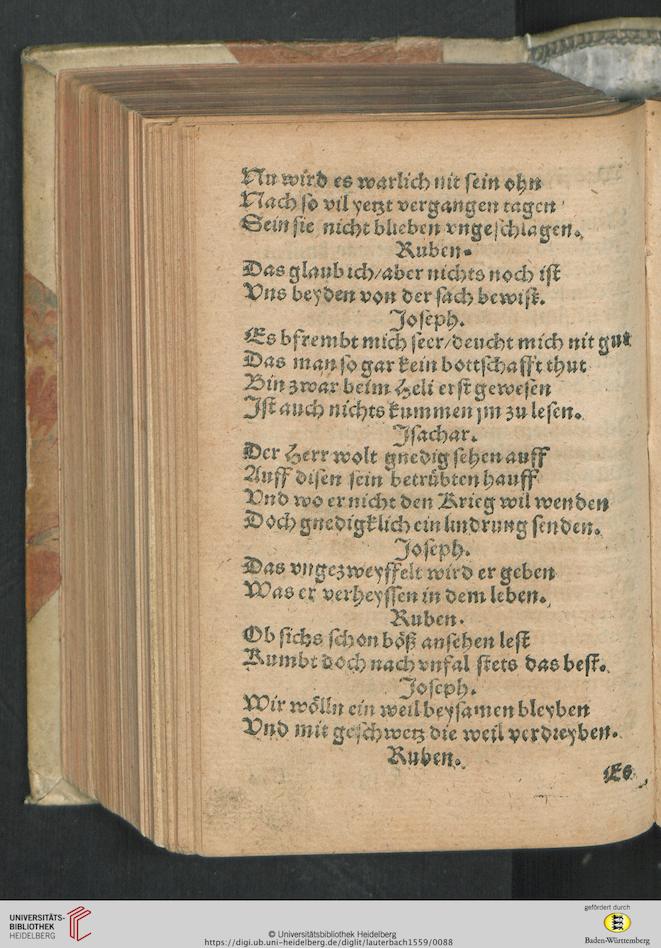 Nu wird es warlich nit sein ohn
Nach so vil yetzt vergangen tagen
Sein sie nicht blieben vngeschlagen.
Ruben.
Das glaub ich/aber nichts noch ist
Vns beyden von der sach bewist.
Joseph.
Es bfrembt mich seer/deucht mich nit gut
Das man so gar kein bottschafft thut
Bin zwar beim Heli erst gewesen
Ist auch nichts kummen jm zu lesen.
Isachar.
Der Herr wolt gnedig sehen auff
Auff disen sein betrübten hauff
Vnd wo er nicht den Krieg wil wenden
Doch gnedigklich ein lindrung senden.
Joseph.
Das vngezweyffelt wird er geben
Was er verheyssen in dem leben.
Ruben.
Ob sichs schon böß ansehen lest
Kumbt doch nach vnfal stets das best.
Joseph.
Wir wölln ein weil beysamen bleyben
Vnd mit geschwetz die weil verdreyben.
Ruben.
Es
UNIVERSITÄTS-
BIBLIOTHEK
HEIDELBERG
© Universitätsbibliothek Heidelberg
https://digi.ub.uni-heidelberg.de/diglit/lauterbach1559/0088
gefördert durch
Baden-Württemberg